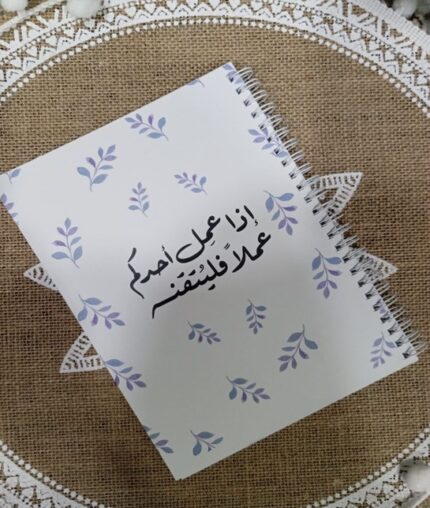 إذا عمِل أحدكم
عملاً فليُتقنه